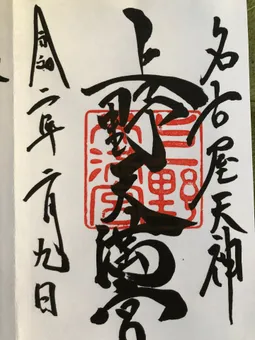 名古屋天神
上野天満宮
上野天満宮
令和二年二月九日